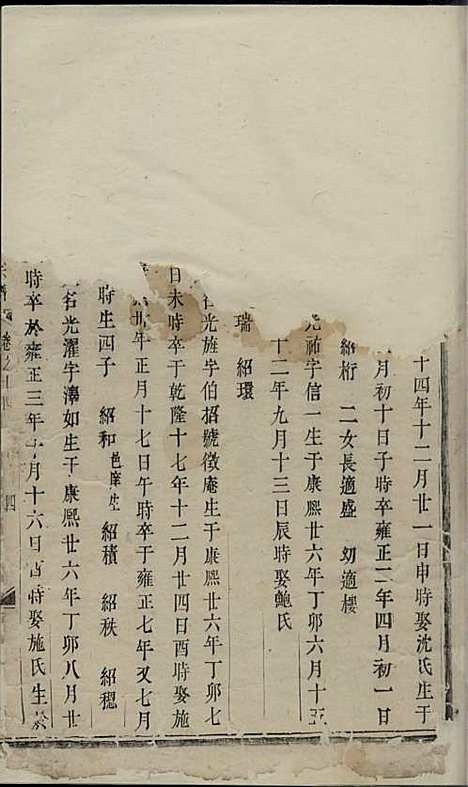 十四年十二月廿一日申時娶沈氏生于
月初十日子時卒雍正二年四月初一日
紹桁 二女長適盛 幼適樓
光祐字信一生于康熙廿六年丁卯六月十五
十二年九月十三日辰時娶鮑氏
瑞 紹環
光旌字伯招號徵庵生于康熙廿六年丁卯七
日未時卒于乾隆十七年十二月廿四日酉時娶施
午正月十七日午時卒于雍正七年又七月
時生四子 紹和邑庠生 紹積 紹秩 紹穏
名光濯字溥如生于康熙廿六年丁卯八月廿
時卒於雍正三年十月十六日酉時娶施氏生於
卷之十四 四